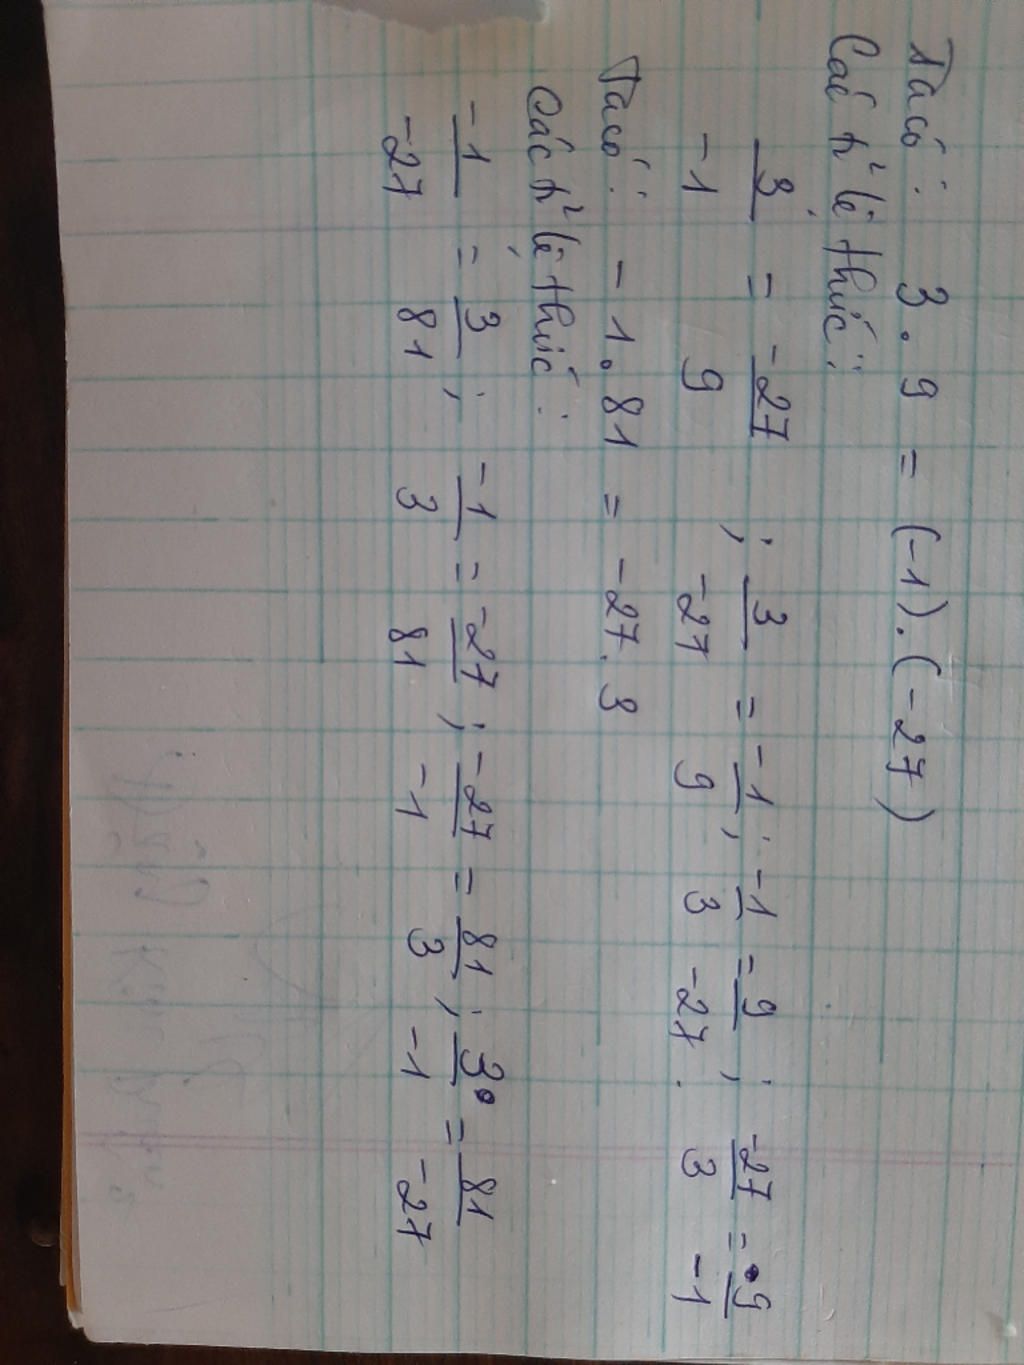 Ta có : 3 . 9 = (-1) . (-27)
Các tỉ lệ thức :
3/-1 = -27/9 ; 3/-27 = -1/9 ; -1/3 = 9/-27 ; -27/3 = 9/-1
Ta có : -1 . 81 = -27 . 3
Các tỉ lệ thức :
-1/-27 = 3/81 ; -1/3 = -27/81 ; -27/-1 = 81/3 ; 3/-1 = 81/-27